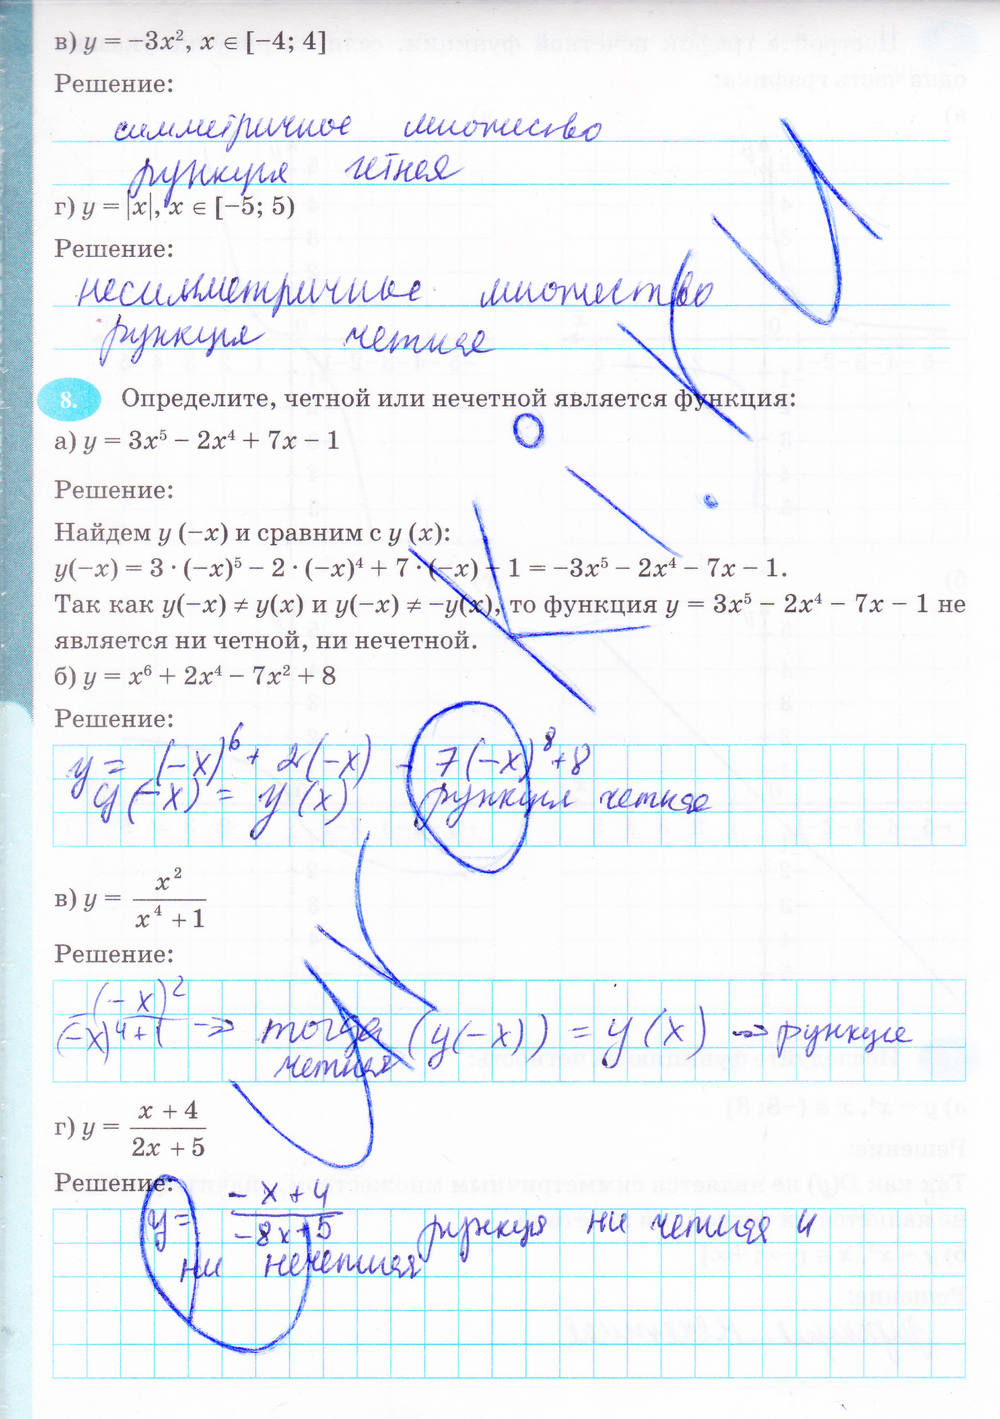 в) y = −3x², x ∈ [−4; 4]
Решение:
симметричное множество
функция четная
г) y = |x|, x ∈ [−5; 5)
Решение:
несимметричные множество
функция четная
8. Определите, четной или нечетной является функция:
а) y = 3x⁵ − 2x⁴ + 7x − 1
Решение:
Найдем y (−x) и сравним с y (x):
y(−x) = 3 · (−x)⁵ − 2 · (−x)⁴ + 7 · (−x) − 1 = −3x⁵ − 2x⁴ − 7x − 1.
Так как y(−x) ≠ y(x) и y(−x) ≠ −y(x), то функция y = 3x⁵ − 2x⁴ − 7x − 1 не
является ни четной, ни нечетной.
б) y = x⁶ + 2x⁴ − 7x² + 8
Решение:
y = (−x)⁶ + 2(−x) − 7(−x)⁸ + 8
y(−x) = y(x) функция четная
в) y = x² / (x⁴ + 1)
Решение:
(−x)² / (−x)⁴ + 1 → тогда (y(−x)) = y(x) → функция
четная
г) y = (x + 4) / (2x + 5)
Решение:
y = (−x + 4) / (−8x + 5) функция ни четная и
ни нечетная